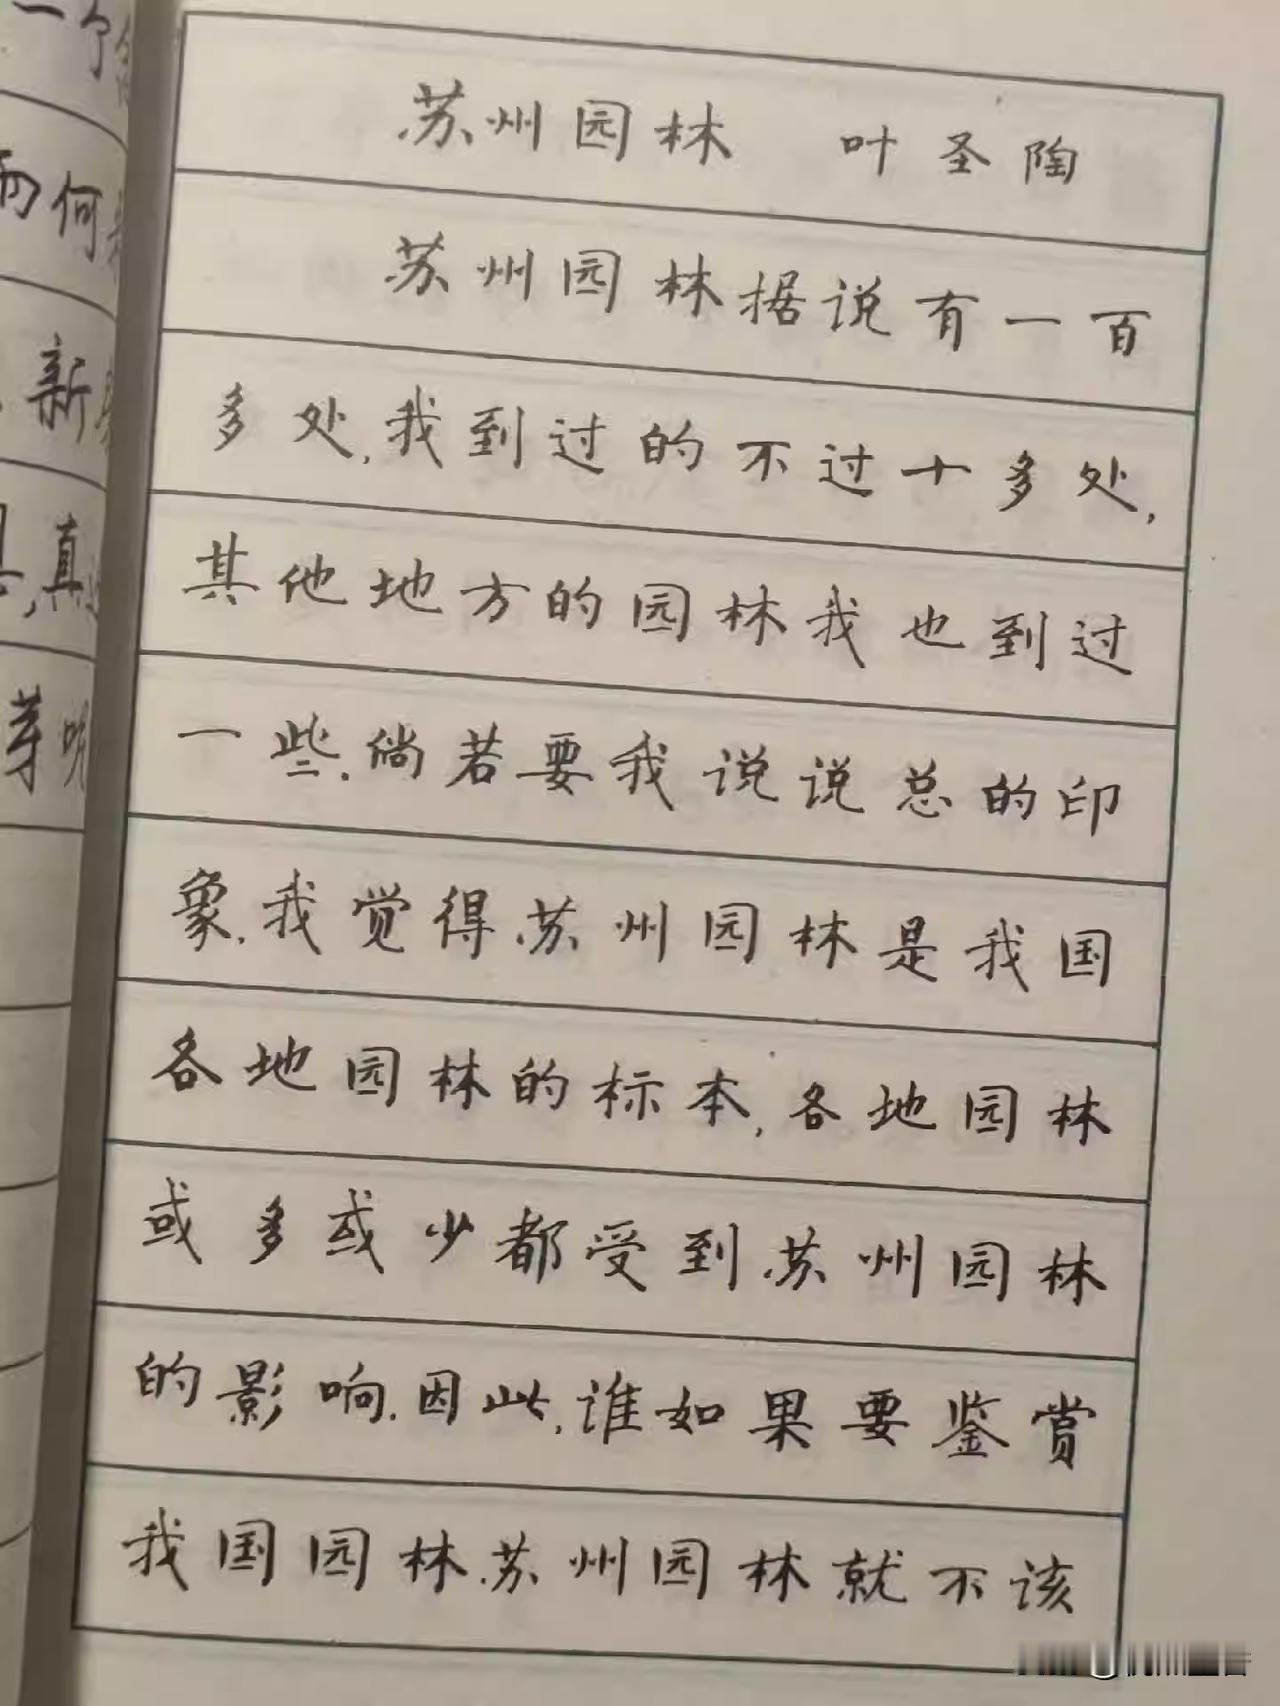 苏州园林 叶圣陶
苏州园林据说有一百
多处,我到过的不过十多处,
其他地方的园林我也到过
一些.倘若要我说说总的印
象,我觉得苏州园林是我国
各地园林的标本,各地园林
或多或少都受到苏州园林
的影响.因此,谁如果要鉴赏
我国园林.苏州园林就不该
一个
何
新
真
芽呢